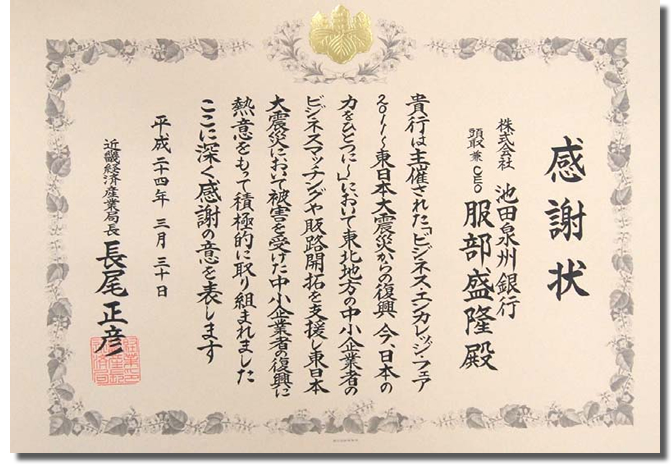 感謝状
株式会社 池田泉州銀行
頭取兼CEO 服部盛隆 殿
貴行は主催された「ビジネス・エンカレッジ・フェア
2011～東日本大震災からの復興、今、日本の
力をひとつに～」において東北地方の中小企業者の
ビジネスマッチングや販路開拓を支援し東日本
大震災において被害を受けた中小企業者の復興に
熱意をもって積極的に取り組まれました
ここに深く感謝の意を表します
平成二十四年 三月 三十日
近畿経済産業局長 長尾正彦